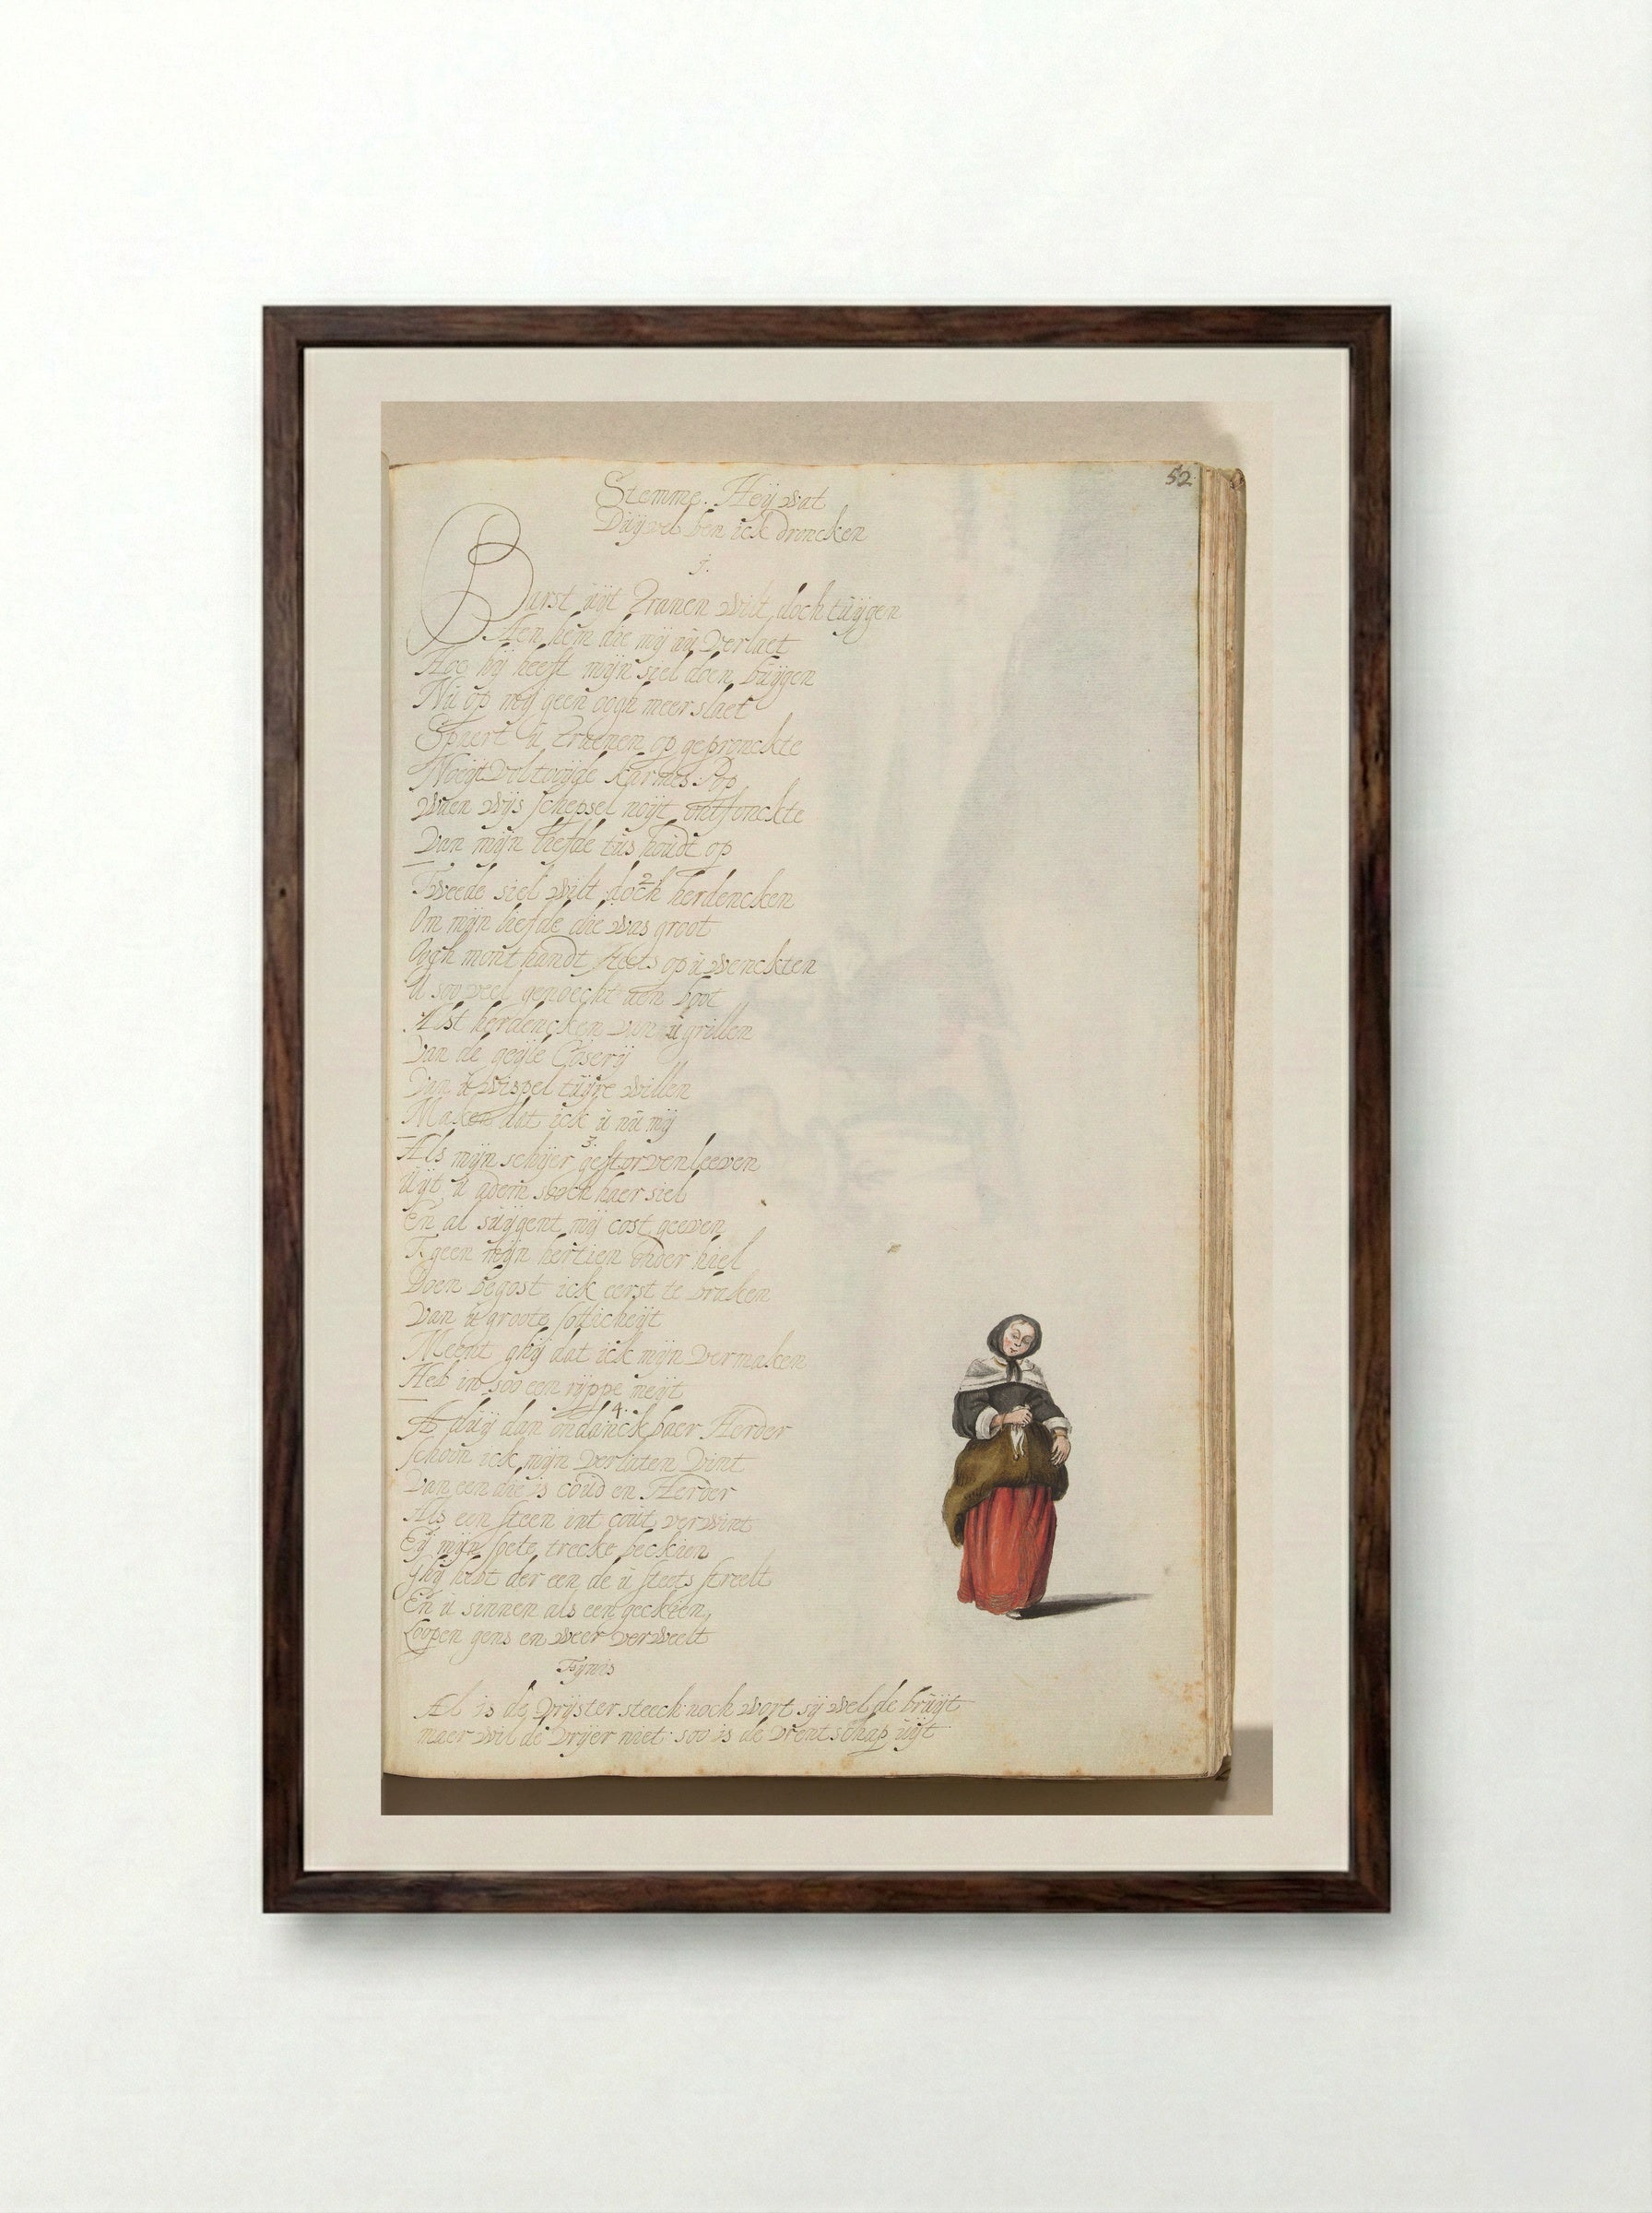 52
Stemme. Heÿ wat
Duÿvel ben ick droncken
1.
Barst uÿt Tranen wilt doch tuÿgen
Aen hem die mÿ nu verlaet
Hoe hÿ heeft mÿn siel doen buÿgen
Nu op mÿ geen oogh meer slaet
Spaert u Traenen op gepronckte
Noÿt Karmis Pop
Waen wÿs schepsel noÿt ontfonckte
Dan mÿn liefde tus houdt op
2
Tweede siel wilt doch herdencken
Om mÿn liefde die was groot
Oogh mont handt steets op u wenckten
U soo veel genoecht aen boot
Alst herdencken van u grillen
Van de geÿle
Van u wispel tuÿre willen
Maken dat ick u nu mÿ
3.
Als mÿn schier gestorven leeven
Uÿt u adem soock haer siel
En al suÿgent mÿ cost geeven
T geen mÿn hertien onder hiel
Doen begost ick eerst te braken
Van u groote sotticheÿt
Meent ghÿ dat ick mÿn vermaken
Heb in soo een rÿppe meÿt
4.
A duÿ dan ondanckbaer Herder
schoon ick mÿn verlaten vint
Van een die is coud en Herder
Als een steen int cout verwint
Eÿ mÿn soete trecke beckien
Ghÿ hebt der een de u steets streelt
En u sinnen als een geckien,
Loopen gens en weer verweelt
Fynis
Al is de Vrÿster steeck noch wort sÿ wel de bruÿt
maer wil de Vrÿer niet soo is de Vrentschap uÿt